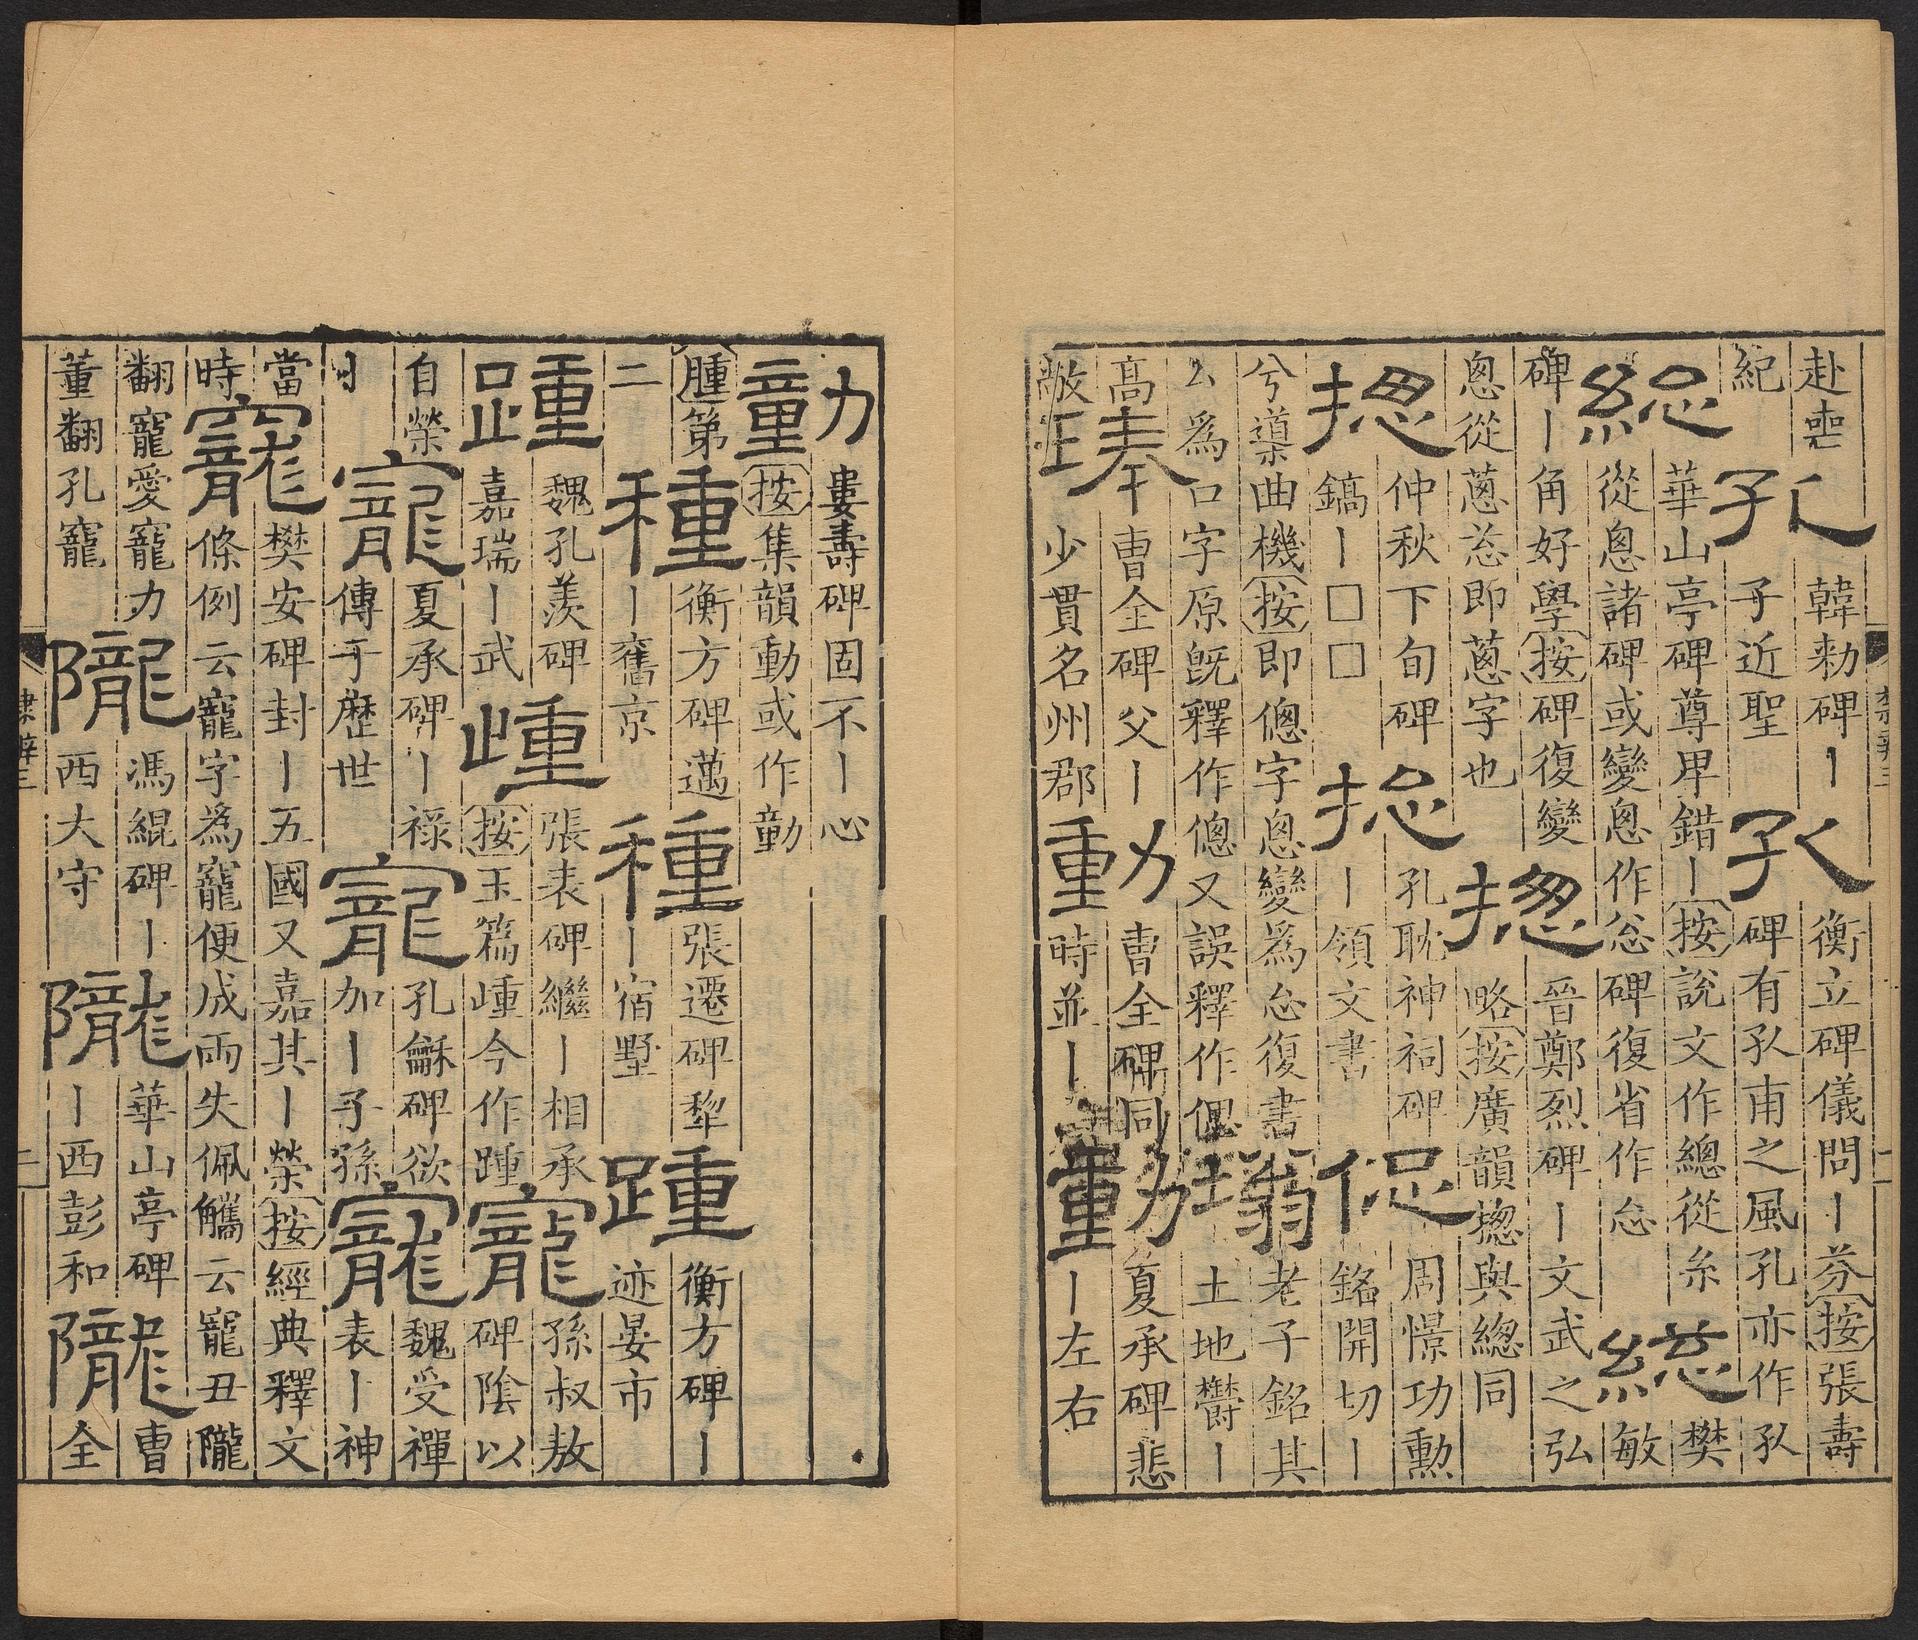 赴喪
紀
孔
韓勑碑丨
子近聖
孔
衡立碑儀問丨芬按張壽
碑有孔甫之風孔亦作孔
總
華山亭碑尊卑錯丨按說文作總從糸
從悤諸碑或變悤作怱碑復省作㣺
總
樊
敏
碑丨角好學按碑復變
悤從蔥䓗即蔥字也
摠
晉鄭烈碑丨文武之弘
略按廣韻摠與總同
揔
仲秋下旬碑
鎬丨□□
捴
孔耽神祠碑
丨領文書
偬
周憬功勲
銘開切丨
兮導曲機按即傯字悤變為㣺復書
厶為口字原旣釋作傯又誤釋作偲
塕
老子銘其
土地鬱丨
高
敞
琫
曹全碑父丨
少貫名州郡
動
曹全碑同
時並丨
動
夏承碑悲
丨左右
動
婁壽碑固不丨心
按集韻動或作勭
腫第
二
種
衡方碑邁
丨舊京
種
張遷碑犂
丨宿墅
踵
衡方碑丨
迹晏市
踵
魏孔羨碑
嘉瑞丨武
歱
張表碑繼丨相承
按玉篇歱今作踵
寵
孫叔敖
碑陰以
自榮
寵
夏承碑丨祿
傳于歷世
寵
孔龢碑欲
加丨子孫
寵
魏受禪
表丨神
當
時
寵
樊安碑封丨五國又嘉其丨榮按經典釋文
條例云寵字為竉便成兩失佩觿云寵丑隴
翻寵愛竉力
董翻孔竉
隴
馮緄碑丨
西大守
隴
華山亭碑
丨西彭和
隴
曹
全